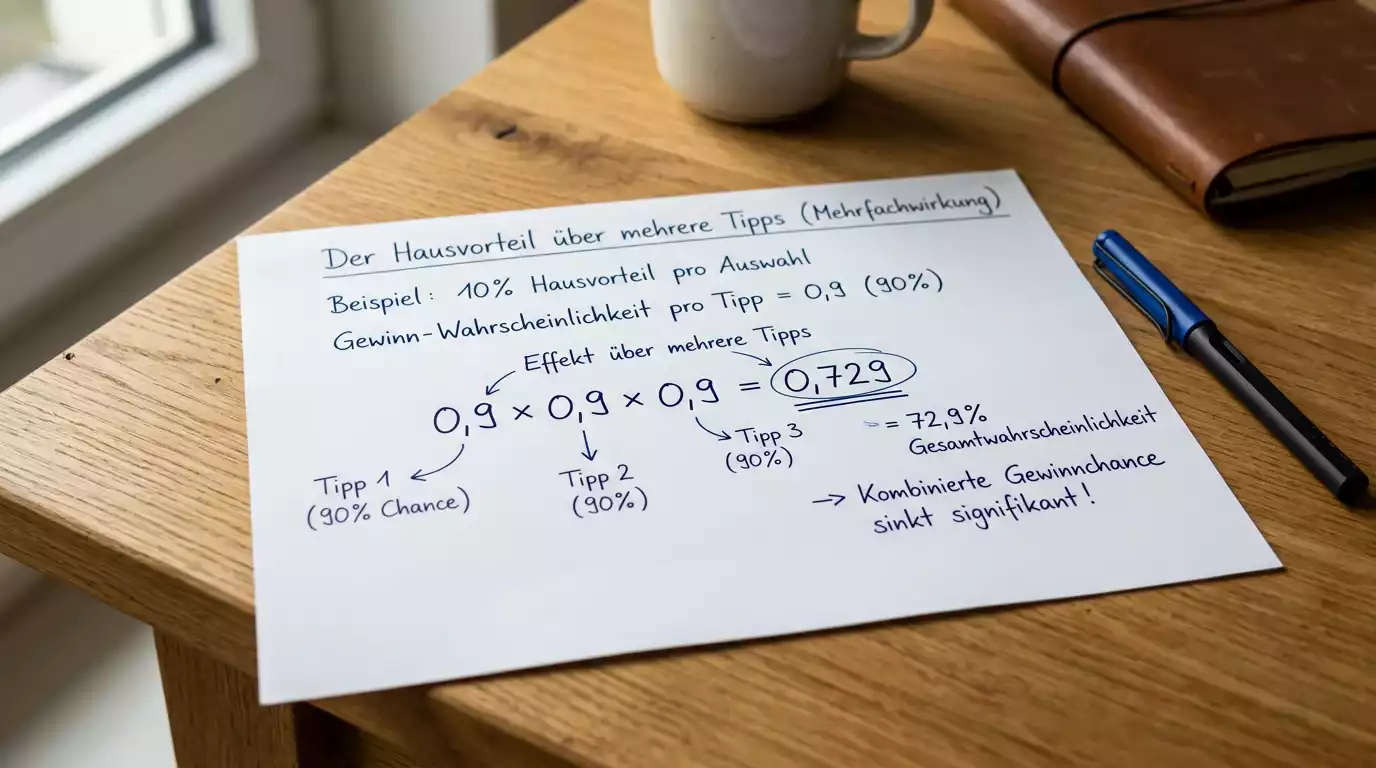 Der Hausvorteil über mehrere Tipps (Mehrfachwirkung)
Beispiel: 10% Hausvorteil pro Auswahl
Gewinn-Wahrscheinlichkeit pro Tipp = 0,9 (90%)
Effekt über mehrere Tipps
0,9 × 0,9 × 0,9 = 0,729
= 72,9%
Gesamtwahrscheinlichkeit
Tipp 1
(90% Chance)
Tipp 2
(90%)
Tipp 3
(90%)
→ Kombinierte Gewinnchance
sinkt signifikant!